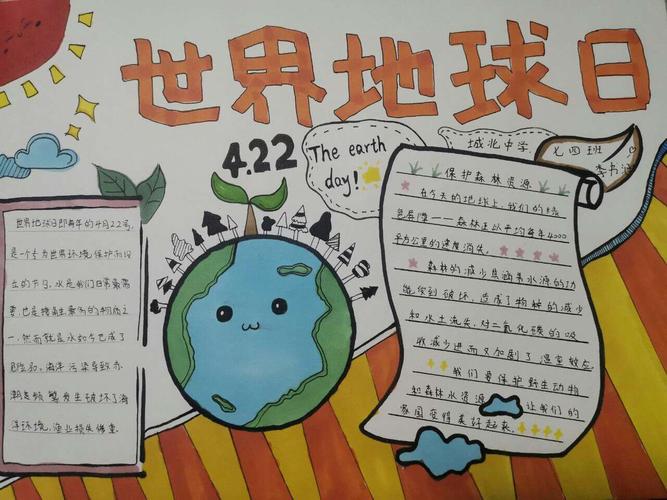 世界地球日
4.22
The earth
day!
城北中学
七四班
李书
世界地球日即每年的4月22号,
是一个专为世界环境保护而设
立的节日,水是我们日常最需
要,也是
的物质之
一,然而就是水如今已成了
危险品,海洋污染导致赤
潮是频繁发生破坏了海
洋环境,渔业损失惨重.
保护森林资源
在今天的地球上,我们的绿
色屏障——森林正以平均每年4000
平方公里的速度消失。
森林的减少使涵养水源的功
能受到破坏,造成了物种的减少
和水土流失,对二氧化碳的吸
收减少进而又加剧了温室效应
我们要保护野生动物
和森林水资源 让我们的
家园变得美好起来.